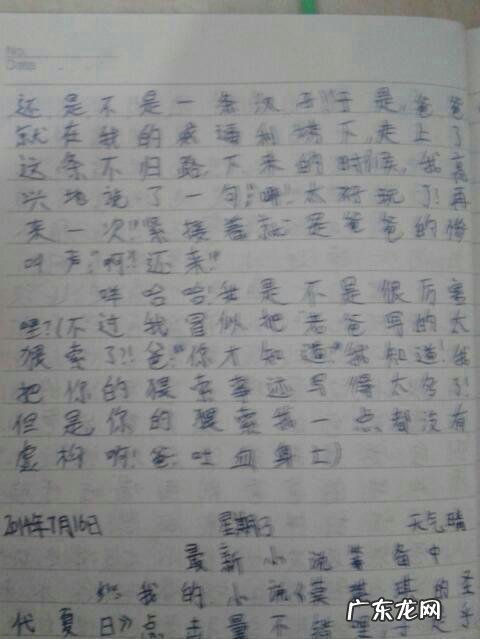 No.
Date
还是不是一条汉子!"于是,爸爸
就在我的威逼利诱下,走上了
这条不归路。下来的时候,我高
兴地说了一句:"哪!太好玩了!再
来一次!"紧接着就是爸爸的惨
叫声:"啊!还来!"
哈哈!我是不是很厉害
嘿?(不过我冒似把老爸写的太
猥索了!爸:"你才知道!"我知道!我
把你的猥索事还写得太多了!
但是,你的猥索我一点都没有
虚构啊!爸:吐血身亡)
2014年7月16日 星期三 天气晴
最新小说筹备中
我的小说《莫琪琪的圣
代夏日》点击量不错
广东龙网